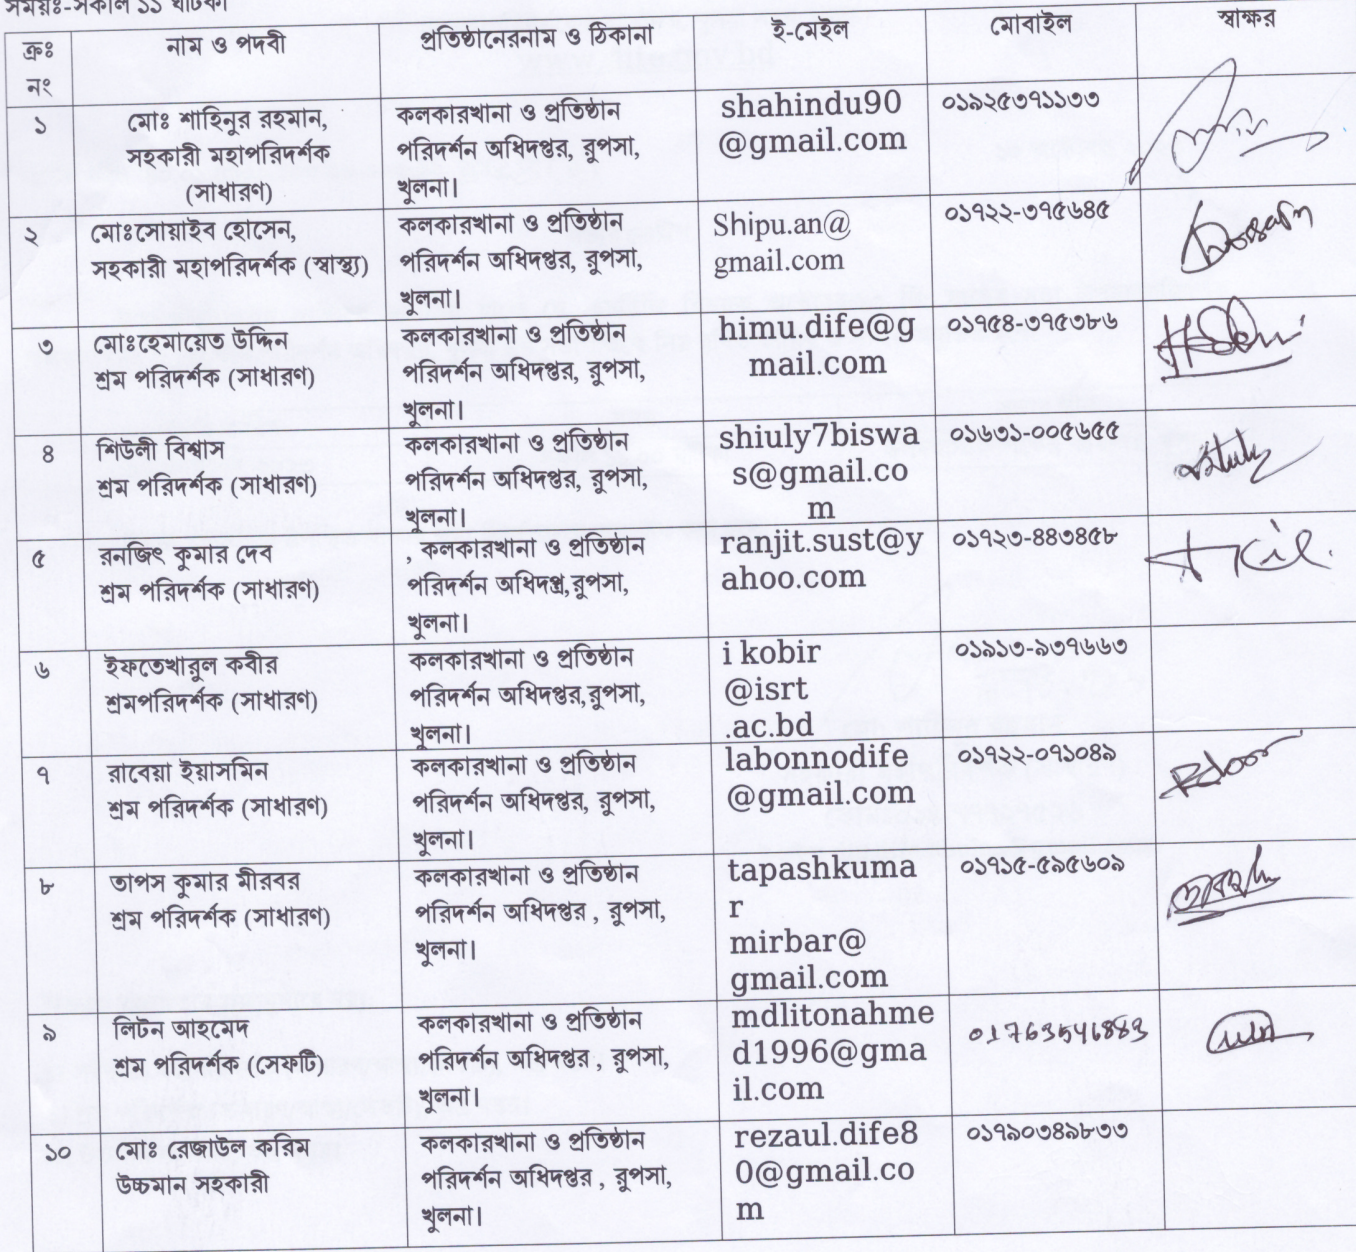 সময়ঃ-সকাল ১১ ঘটিকা
ক্রঃ নং	নাম ও পদবী	প্রতিষ্ঠানেরনাম ও ঠিকানা	ই-মেইল	মোবাইল	স্বাক্ষর
১
মোঃ শাহিনুর রহমান,
সহকারী মহাপরিদর্শক
(সাধারণ)
কলকারখানা ও প্রতিষ্ঠান
পরিদর্শন অধিদপ্তর, রুপসা,
খুলনা।
shahindu90
@gmail.com
০১৯২৫৩৭১১৩৩
২
মোঃসোয়াইব হোসেন,
সহকারী মহাপরিদর্শক (স্বাস্থ্য)
কলকারখানা ও প্রতিষ্ঠান
পরিদর্শন অধিদপ্তর, রুপসা,
খুলনা।
Shipu.an@
gmail.com
০১৭২২-৩৭৫৬৪৫
Hossain
৩
মোঃহেমায়েত উদ্দিন
শ্রম পরিদর্শক (সাধারণ)
কলকারখানা ও প্রতিষ্ঠান
পরিদর্শন অধিদপ্তর, রুপসা,
খুলনা।
himu.dife@g
mail.com
০১৭৫৪-৩৭৫৩৮৬
৪
শিউলী বিশ্বাস
শ্রম পরিদর্শক (সাধারণ)
কলকারখানা ও প্রতিষ্ঠান
পরিদর্শন অধিদপ্তর, রুপসা,
খুলনা।
shiuly7biswa
s@gmail.co
m
০১৬৩১-০০৫৬৫৫
৫
রনজিৎ কুমার দেব
শ্রম পরিদর্শক (সাধারণ)
, কলকারখানা ও প্রতিষ্ঠান
পরিদর্শন অধিদপ্ত্র,রুপসা,
খুলনা।
ranjit.sust@y
ahoo.com
০১৭২৩-৪৪৩৪৫৮
৬
ইফতেখারুল কবীর
শ্রমপরিদর্শক (সাধারণ)
কলকারখানা ও প্রতিষ্ঠান
পরিদর্শন অধিদপ্তর,রুপসা,
খুলনা।
i kobir
@isrt
.ac.bd
০১৯১৩-৯৩৭৬৬৩
৭
রাবেয়া ইয়াসমিন
শ্রম পরিদর্শক (সাধারণ)
কলকারখানা ও প্রতিষ্ঠান
পরিদর্শন অধিদপ্তর, রুপসা,
খুলনা।
labonnodife
@gmail.com
০১৭২২-০৭১০৪৯
৮
তাপস কুমার মীরবর
শ্রম পরিদর্শক (সাধারণ)
কলকারখানা ও প্রতিষ্ঠান
পরিদর্শন অধিদপ্তর , রুপসা,
খুলনা।
tapashkuma
r
mirbar@
gmail.com
০১৭১৫-৫৯৫৬০৯
৯
লিটন আহমেদ
শ্রম পরিদর্শক (সেফটি)
কলকারখানা ও প্রতিষ্ঠান
পরিদর্শন অধিদপ্তর , রুপসা,
খুলনা।
mdlitonahme
d1996@gma
il.com
01763546883
১০
মোঃ রেজাউল করিম
উচ্চমান সহকারী
কলকারখানা ও প্রতিষ্ঠান
পরিদর্শন অধিদপ্তর , রুপসা,
খুলনা।
rezaul.dife8
0@gmail.co
m
০১৭৯০৩৪৯৮৩৩